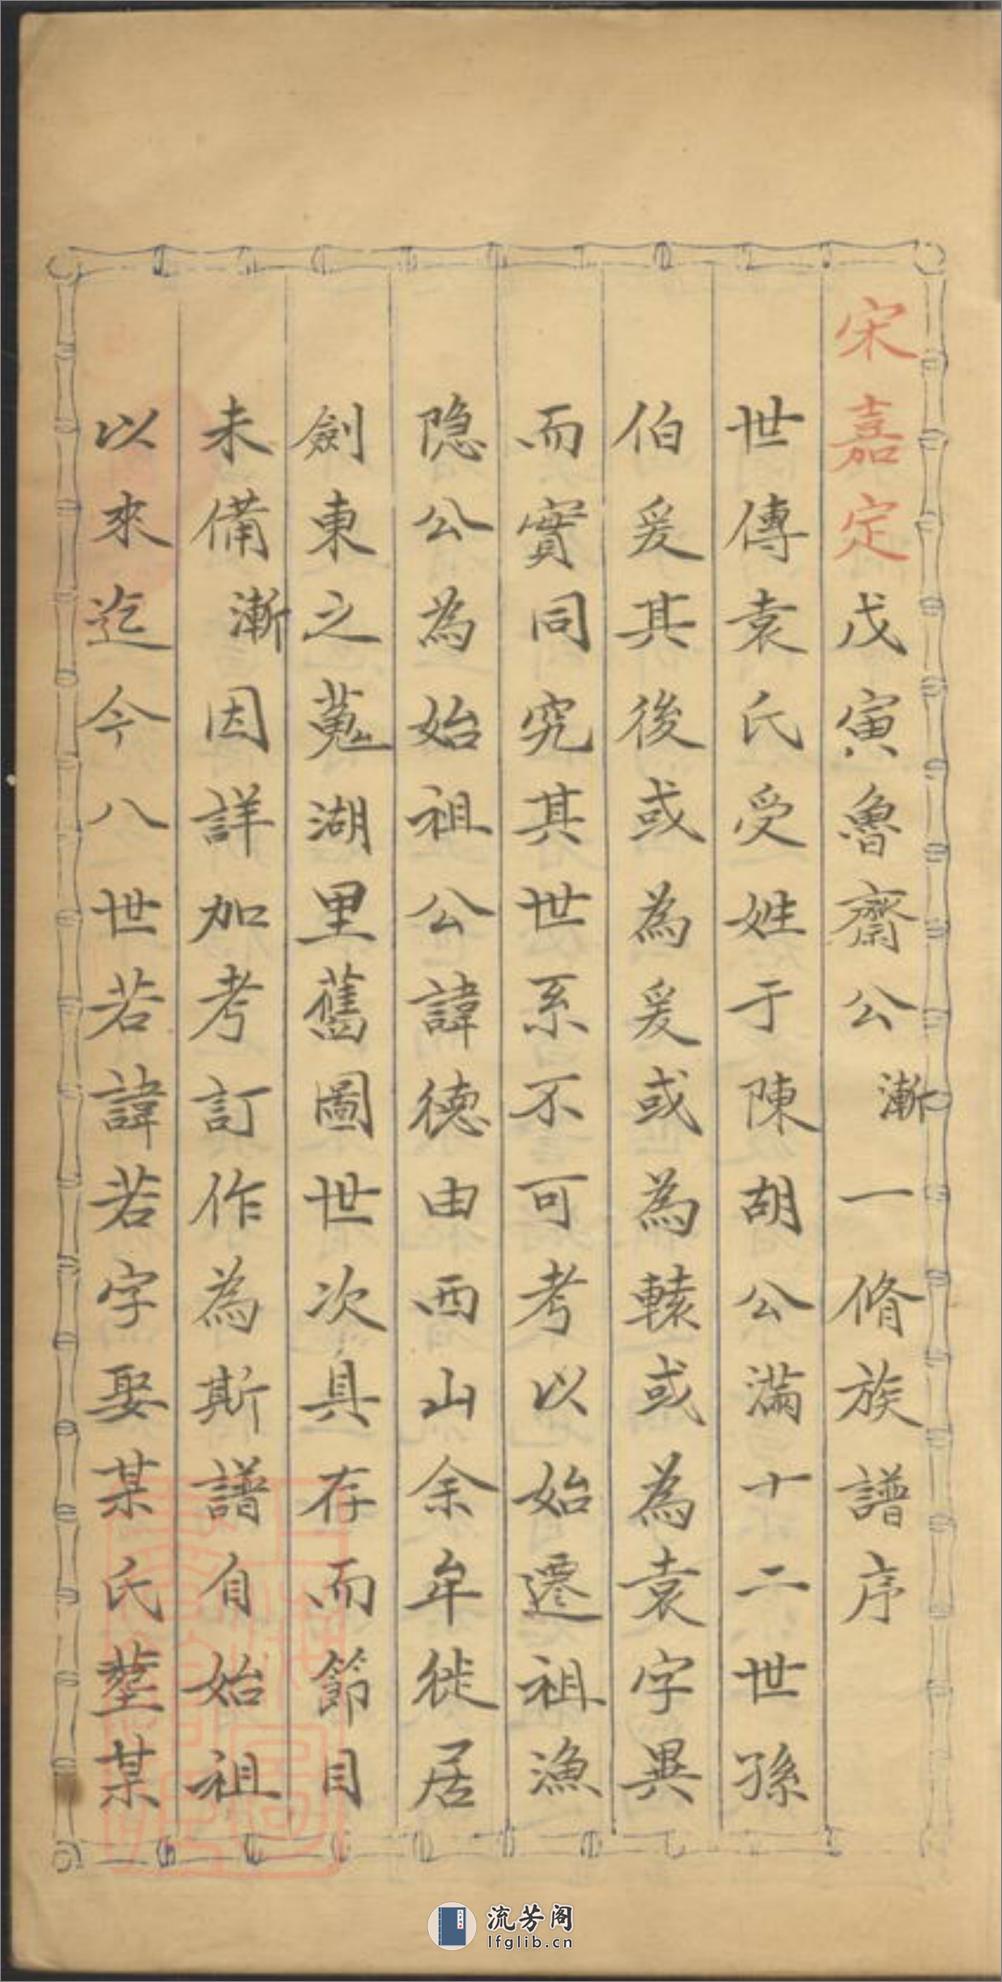 宋嘉定戊寅魯齋公漸一脩族譜序
世傳袁氏受姓于陳胡公滿十二世孫
伯爰其後或為爰或為轅或為袁字異
而實同究其世系不可考以始遷祖漁
隐公為始祖公諱德由西山余年徙居
劍東之蒐湖里舊圖世次具存而節目
未備漸因詳加考訂作為斯譜自始祖
以來迄今八世若諱若字娶某氏塟某
流芳阁
lfglib.cn